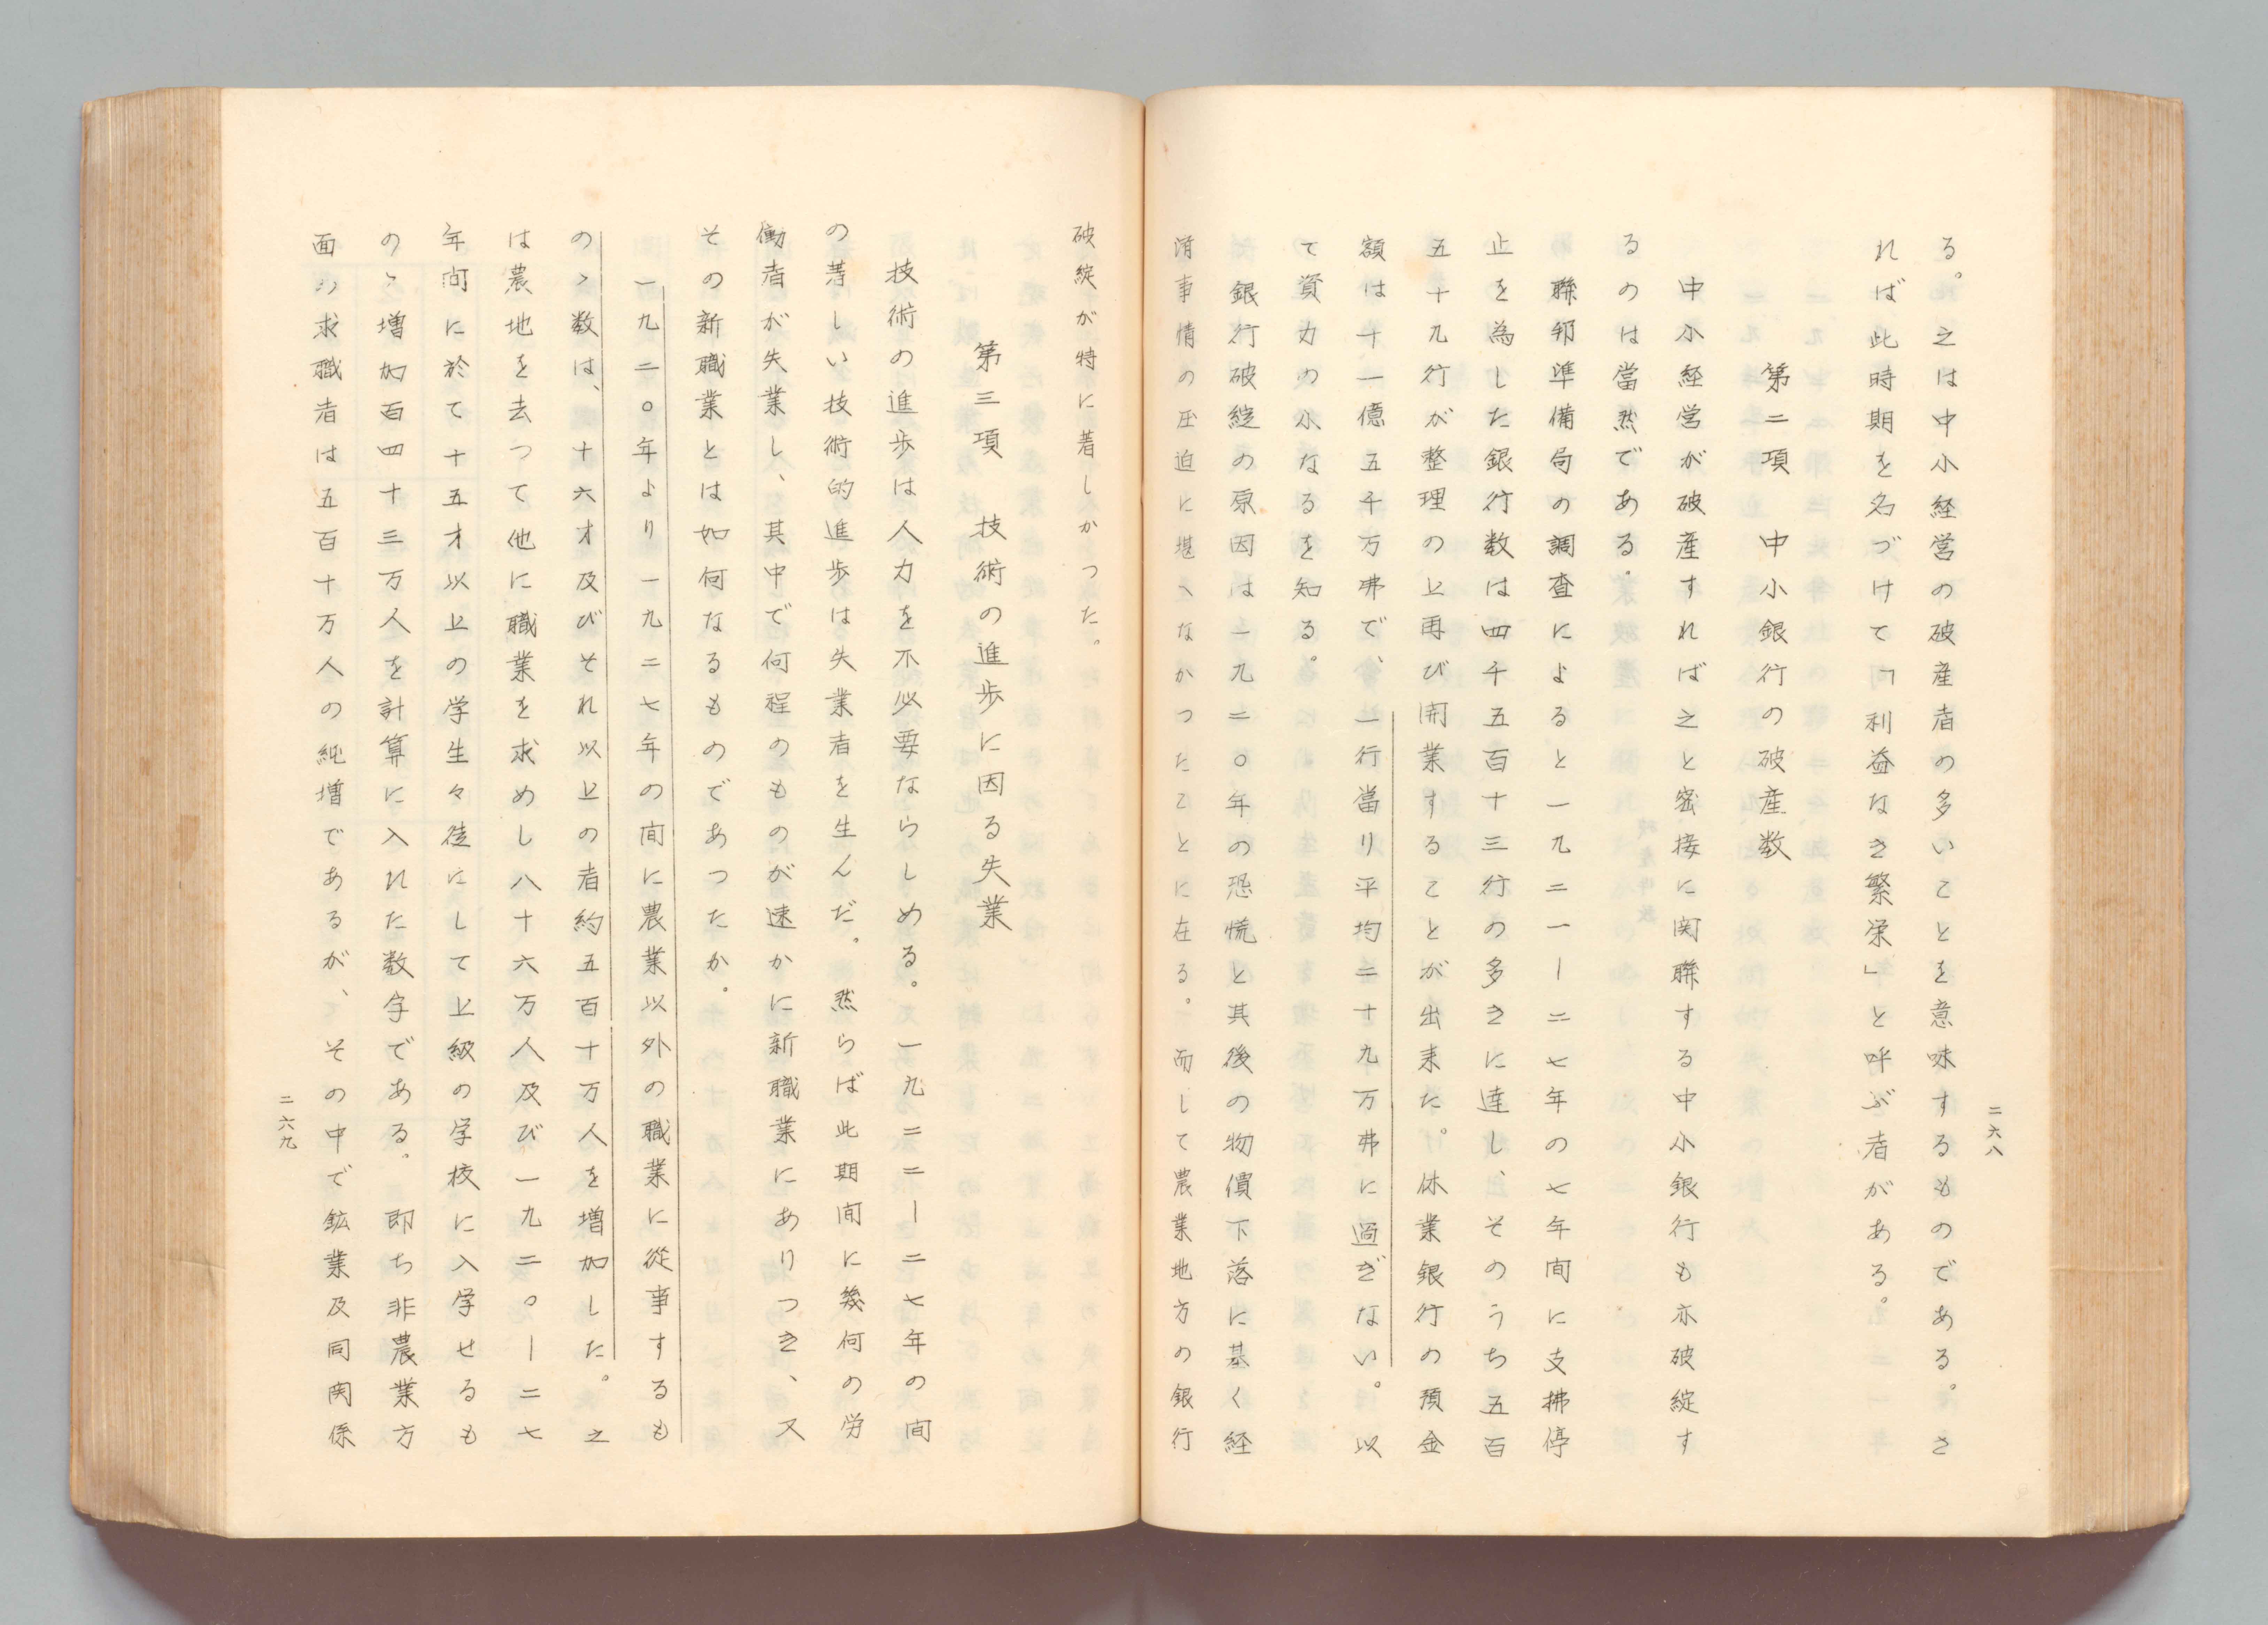 二六八
る。之は中小経営の破産者の多いことを意味するものである。さ
れば此時期を名づけて「利益なき繁栄」と呼ぶ者がある。
第二項　中小銀行の破産数
中小経営が破産すれば之と密接に関聯する中小銀行も亦破綻す
るのは當然である。
聯邦準備局の調査によると一九二一―二七年の七年間に支拂停
止を為した銀行数は四千五百十三行の多きに達し、そのうち五百
五十九行が整理の上再び開業することが出来た。休業銀行の預金
額は十一億五千万弗で、一行當り平均二十九万弗に過ぎない。以
て資力の小なるを知る。
銀行破綻の原因は一九二〇年の恐慌と其後の物價下落に基く経
済事情の圧迫に堪へなかつたことに在る。而して農業地方の銀行
破綻が特に著しかつた。
第三項　技術の進歩に因る失業
技術の進歩は人力を不必要ならしめる。一九二二―二七年の間
の著しい技術的進歩は失業者を生んだ。然らば此期間に幾何の労
働者が失業し、其中で何程のものが速かに新職業にありつき、又
その新職業とは如何なるものであつたか。
一九二〇年より一九二七年の間に農業以外の職業に從事するも
のゝ数は、十六才及びそれ以上の者約五百十万人を増加した。之
は農地を去つて他に職業を求めし八十六万人及び一九二〇―二七
年間に於て十五才以上の学生々徒にして上級の学校に入学せるも
のゝ増加百四十三万人を計算に入れた数字である。即ち非農業方
面の求職者は五百十万人の純増であるが、その中で鉱業及同関係
二六九